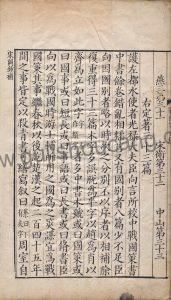 燕三第三十一　宋衛第三十二　中山第三十三
右定著三十三篇
護左都水使者光祿大夫臣向言所校中戰國策書
中書餘卷錯亂相糅莒又有國別者八篇少不足臣
向因國別者略以時次之分別不以序者以相補除
復重得三十三篇本字多誤脫為半字以趙為肖以
齊為立如此字者多中書本號或曰國策或曰國
事或曰短長或曰事語或曰長書或曰脩書臣
向以為戰國時游士輔所用之國為之策謀宜為戰
國策其事繼春秋以後訖楚漢之起二百四十五年
間之事皆定以殺青書可繕寫敘曰周室自